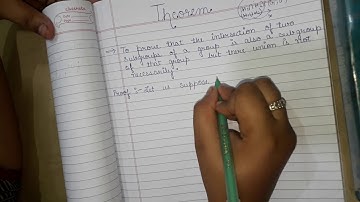 Theorem
→ To prove that the intersection of two
subgroups of a group is also a subgroup
of that group but there union is not
necessarily.
Proof :- Let us suppose